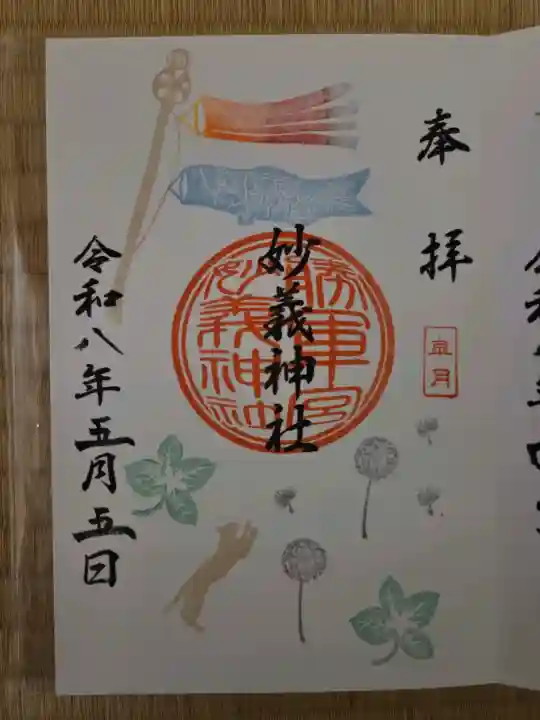 奉拝
皐月
妙義神社
勝軍宮
妙義神社
令和八年五月五日